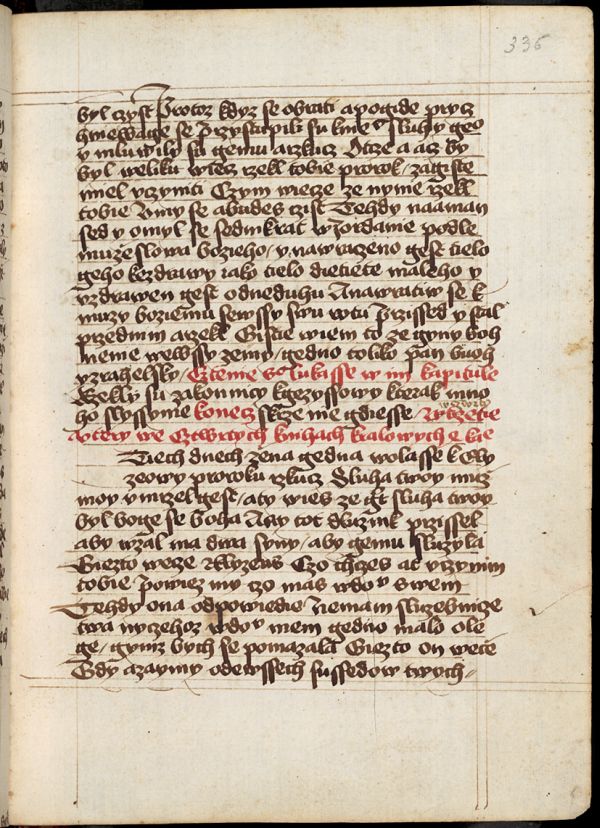 336
byl czyst Protoz kdyz se obrati a pogide prycz
hniewage se Przystupili su knie{mu} sluhy geo
y mluwily su gemu arzkucz Otcze a acz by
byl weliku wiecz rzekl tobie prorok / zagiste
miel vczyniti Czym wiecze ze nynie rzekl
tobie Vmy se abudes czist Tehdy naaman
sed y omyl se sedmkrat w Jordanie podle
muze slowa bozieho / y nawraczeno gest tielo
geho kezdrawy iako tielo dietiete maleho y
vzdrawen gest odneduhu A nawratiw se k
muzy boziemu sewssy swu wtu Przissed y stal
przednim arzekl Gistie wiem to ze gyny boh
nenie wewssy zemy / gedno toliko pan buoh
yzrahelsky / Cztenie S{o} lukasse w iiii kapitule
Rzekly su zakonniczy kgezyssowy kterak mno
ho slyssyme konecz skrze nie gdiesse / Wtery
Wtczenie
aytery we Cztwrtych knihach kralowych e kie
Tiech dnech zena gedna wolasse k Ely
zeowy proroku rzkucz Sluha twoy muz
moy vmrzel gest / aty wies ze gt sluha twoy
byl boge se boha A ay tot dluznik przissel
aby wzal ma dwa syny / aby gemu sluzyla
Giezto wecze Elyzeus Czo chczes at vczynim
tobie Powiez my czo mas wdomu swem
Tehdy ona odpowiedie / Niemam sluzebnicze
twa nyczehoz wdomu mem gedno malo ole
ge / gymz bych se pomazala Giezto on wece
Gdy azaymy odewssech sussedow twych /